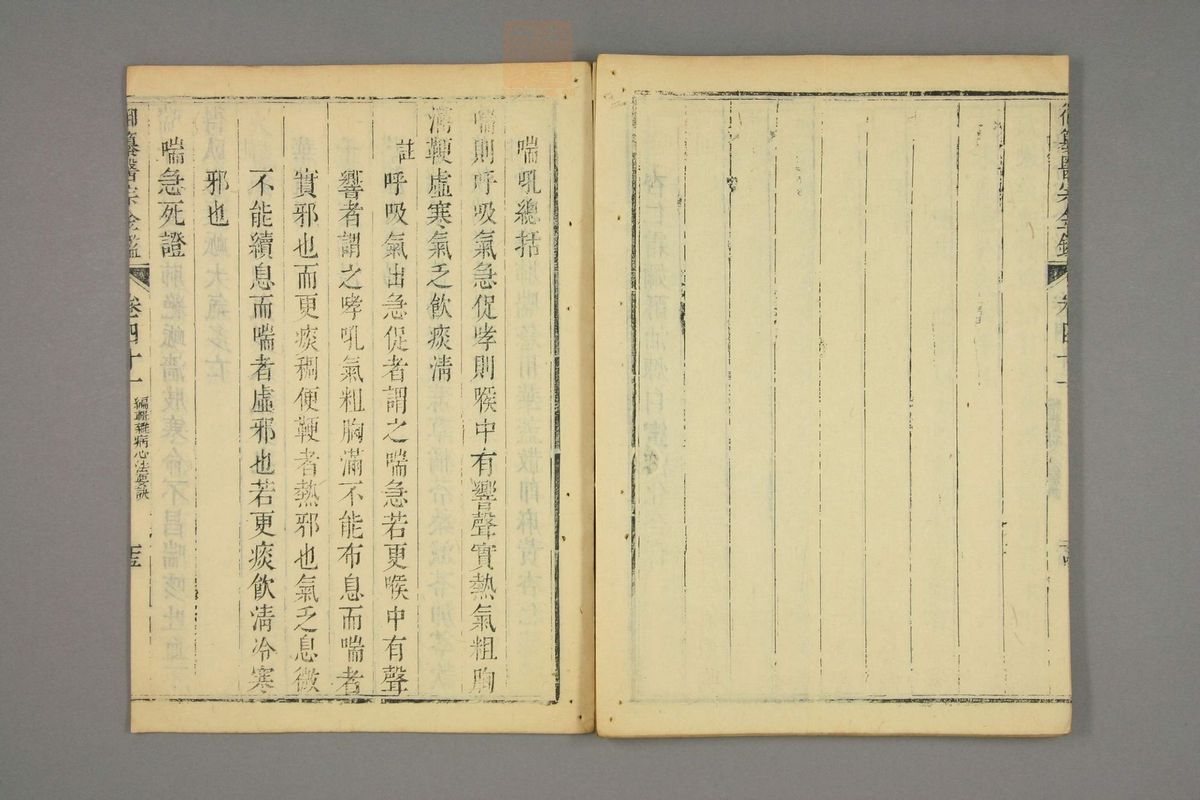 御纂醫宗金鑑
卷四十一
喘吼總括
喘則呼吸氣急促哮則喉中有響聲實熱氣粗胸
滿鞕虛寒氣乏飲痰淸
註呼吸氣出急促者謂之喘急若更喉中有聲
響者謂之哮吼氣粗胸滿不能布息而喘者
實邪也而更痰稠便鞕者熱邪也氣乏息微
不能續息而喘者虛邪也若更痰飲淸冷寒
邪也
喘急死證
御纂醫宗金鑑
卷四十一
編輯雜病心法要訣